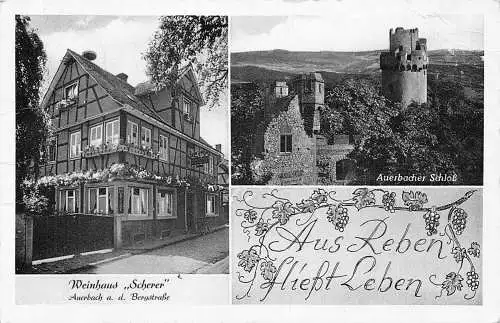 Auerbacher Schloß
Aus Reben
fließt Leben
Weinhaus „Scherer"
Auerbach a. d. Bergstraße